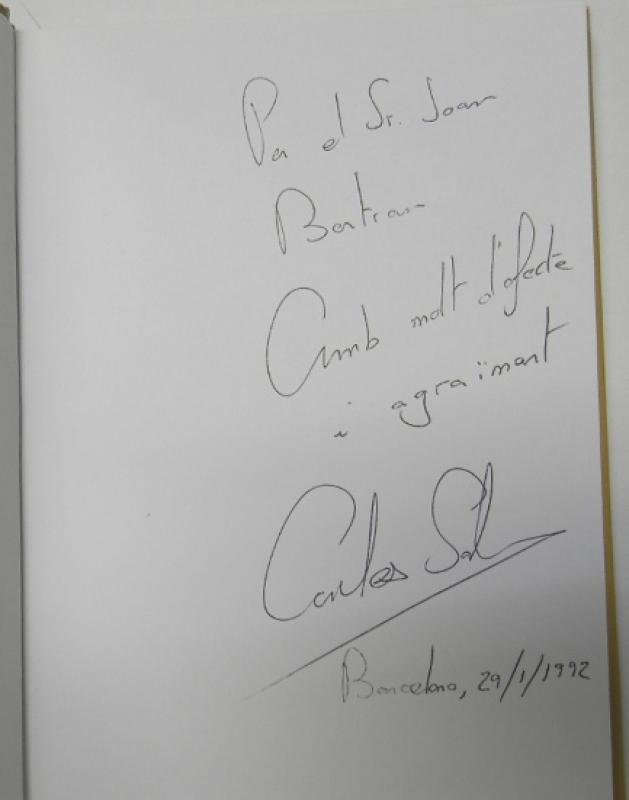 Pa el Sr. Joan
Bertran
Amb molt d'afecte
i agraïment
Carles Sol
Barcelona, 29/1/1992